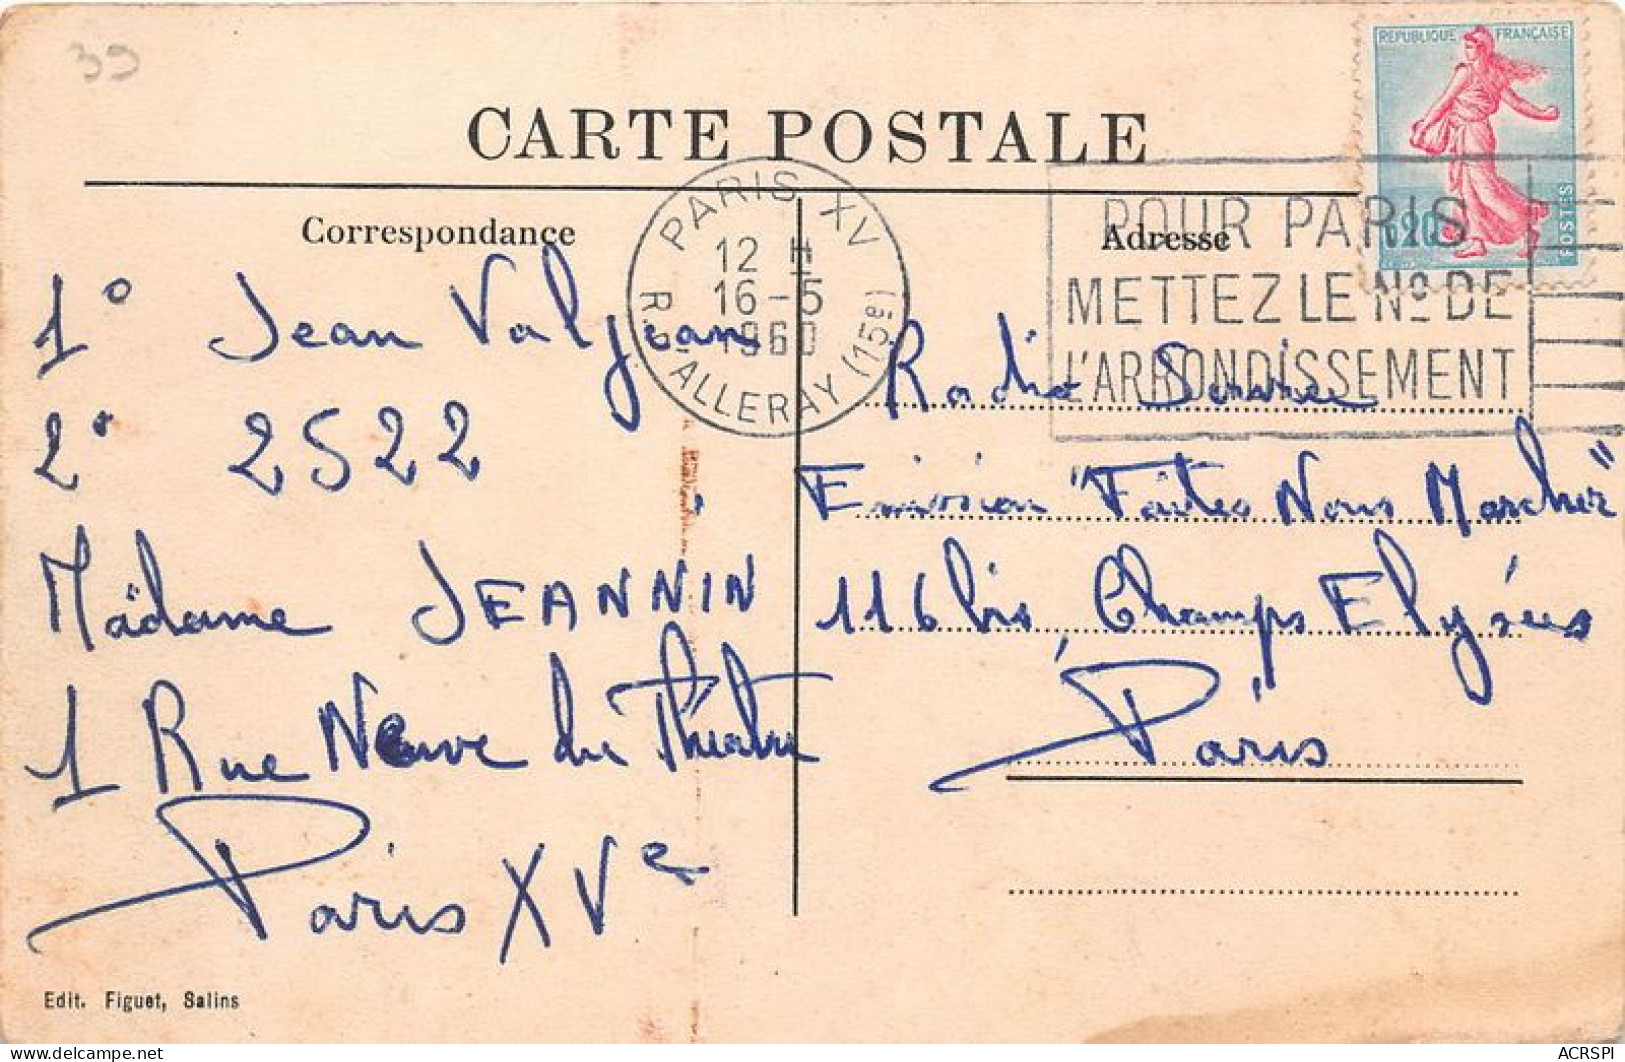 39
REPUBLIQUE FRANÇAISE
0,20
POSTES
CARTE POSTALE
PARIS XV
12 H
16-5
1960
R. D'ALLERAY (15e)
POUR PARIS
METTEZ LE No DE
L'ARRONDISSEMENT
Correspondance
1° Jean Valjean
2° 2522
Madame JEANNIN
1 Rue Neuve du Théatre
Paris XVe
Edit. Figuet, Salins
Adresse
Radio Service
Emission "Faites Nous Marcher"
116 bis, Champs Elysées
Paris
ACRSPI